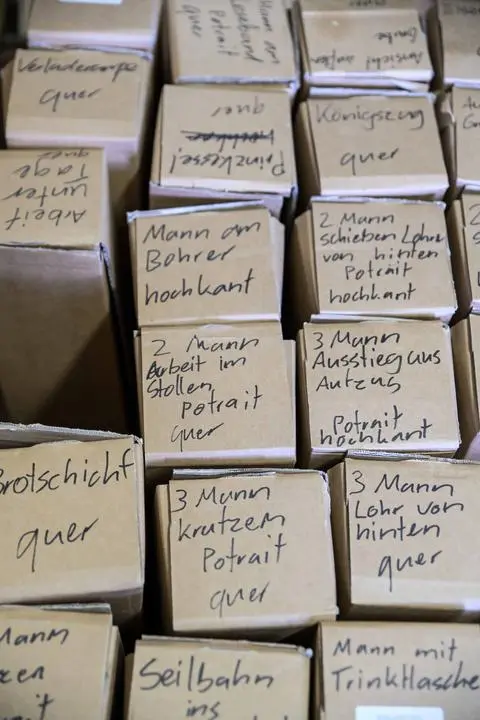 Mann am
Leseband
Potrait
quer
Aussicht außen
Verladerampe
quer
Prinzkessel
hochkant
quer
Königszug
quer
Arbeit
unter
Tage
quer
Mann am
Bohrer
hochkant
2 Mann
schieben Lohre
von hinten
Potrait
hochkant
2 Mann
Arbeit im
Stollen
Potrait
quer
3 Mann
Ausstieg aus
Aufzug
Potrait
hochkant
Brotschicht
quer
3 Mann
kratzem
Potrait
quer
3 Mann
Lohr von
hinten
quer
Mann
Seilbahn
ins
Mann mit
Trinkflasche